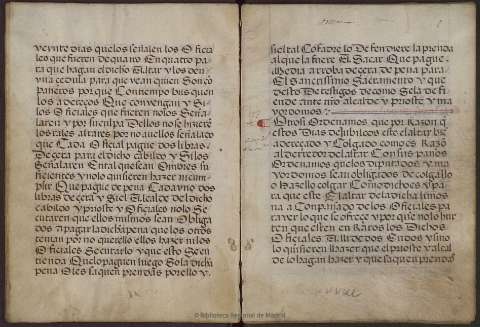 veynte dias quelos señalen los ofici
ales que fueren de quano En quatro pa
ra que hagan el dicho Altar y los den
vna çedula para que vean quien Son co
pañeros por que Con tiempo bus quen
los adereços Que convengan y Si
los oficiales que fueren no los Seña
laren y por su culpa Dellos no se hizere
los tales altares por no auellos señalaco
que Cada oficial pague dos libras
De çera para el dicho cabildo y Si los
Señalaren En tal quesean Onbres su
ficientes y no lo quisieren hazer ni cum
plir Que pague de pena Cada vno dos
libras de çera y Si el Alcalde del dicho
cabildo y prioste y oficiales no lo Se
cutaren que ellos mismos sean obliga
dos apagar la dicha pena que los otros
tenian por no querello ellos hazer ni los
oficiales Secutarlo y que esto Se en
tienda Que lo paguen luego So la dicha
pena O les saquen prendas por ello y
si el tal Cofadre lo Defendiere la prenda
al que la fuere A Sacar Que pague
Media arroba de çera de pena para
El Santissimo Sacramento y que
desto De testigos de como Se la de fi
ende ante nro alcalde y prioste y ma
yordomos
Otrosi Ordenamos que por Razon q
estos Dias de Jubileos este el altar bie
aderecado y Colgado como es Razō
al derredor del altar Con sus paños
Ordenamos que los diputados y ma
yordomos sean obligados de colgallo
o Hazello colgar Como dichoes y pa
ra que este El altar de la dicha forma
na a Conpañado de los oficiales pa
ra ver lo que se ofrece y por que no lo hur
ten que esten en Ratos los Dichos
Oficiales Alli de dos En dos y si no
lo quisieren Hazer que el prioste y alcal
de lo hagan hazer y que saquen prendas
© Biblioteca Regional de Madrid